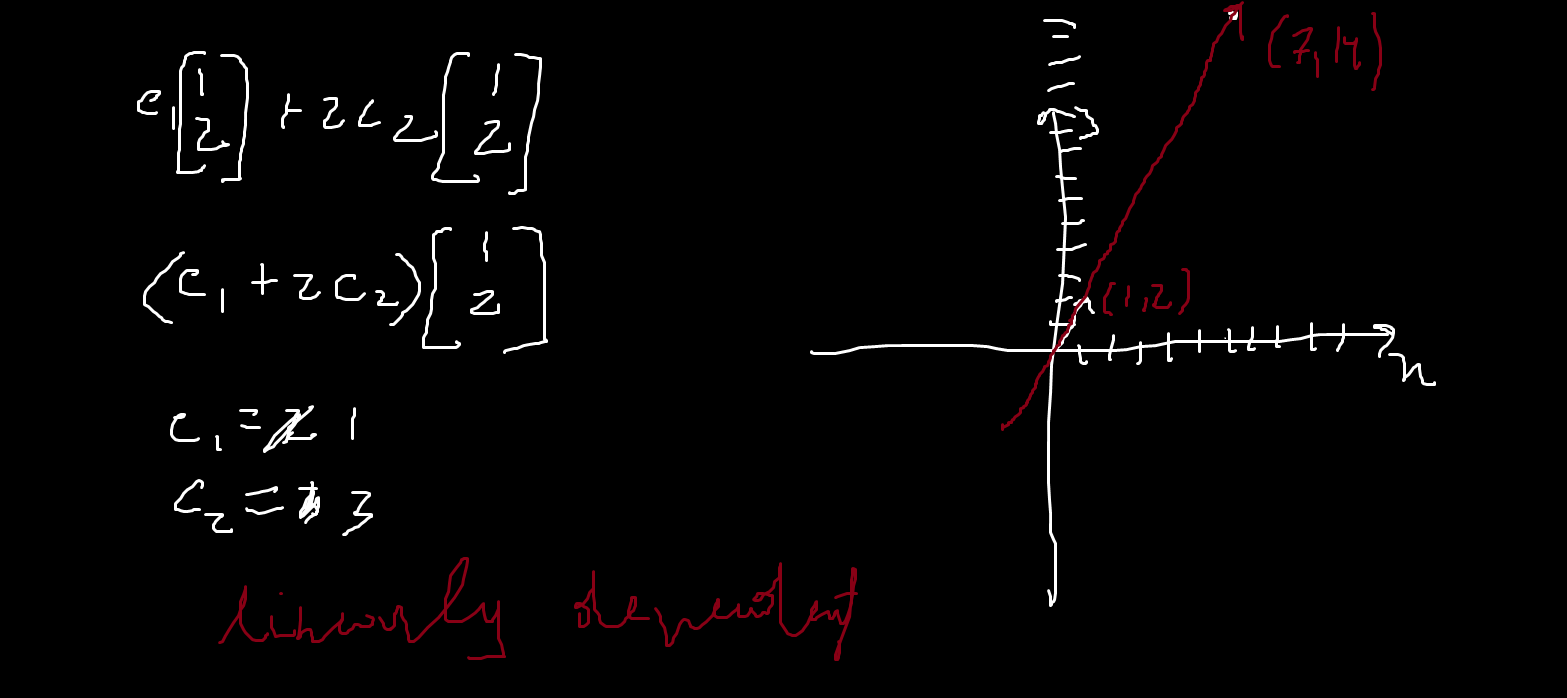 c₁ [1 2] + 2c₂ [1 2]
(c₁ + 2c₂) [1 2]
c₁ = 1
c₂ = 3
linearly dependent
(7,14)
(1,2)
x